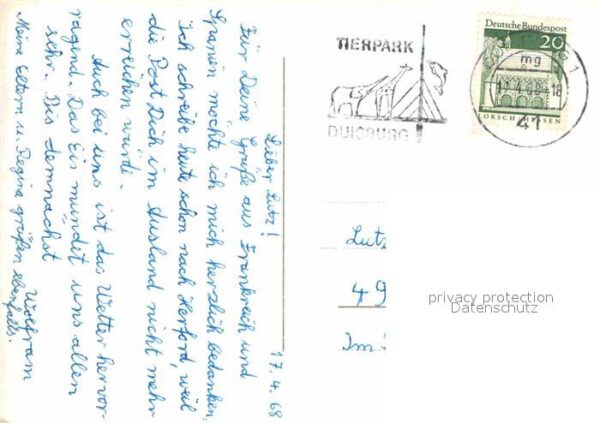 17.4.68
Lieber Lutz!
Für Deine Grüße aus Frankreich und
Spanien möchte ich mich herzlich bedanken,
ich schreibe heute schon nach Herford, weil
die Post Dich im Ausland nicht mehr
erreichen würde.
Auch bei uns ist das Wetter hervor-
ragend. Das Eis mundet uns allen
sehr. Bis demnächst
Wolfram
Meine Eltern u. Regina grüßen ebenfalls.
TIERPARK
DUISBURG
Deutsche Bundespost
20
LORSCH/HESSEN
1
mg
-18
41
Lutz
49
Im
privacy protection
Datenschutz